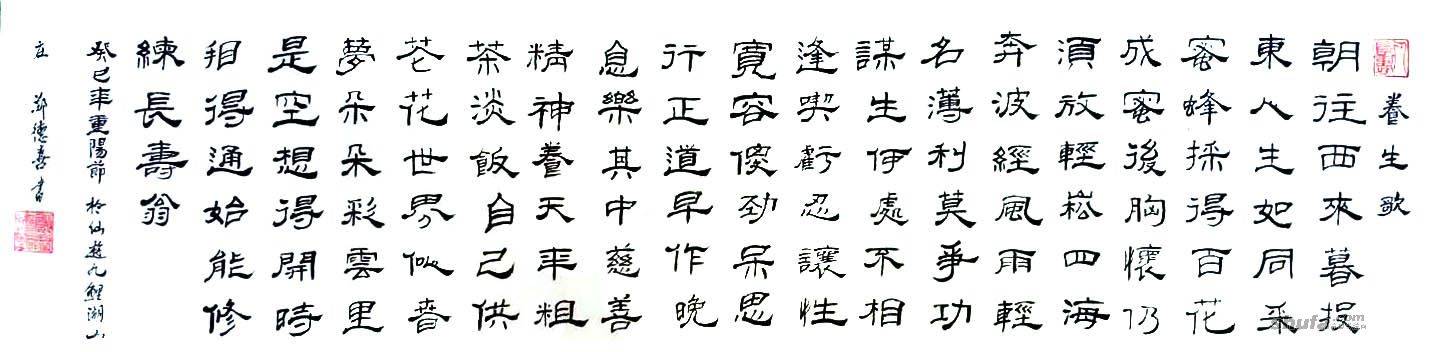 養生歌
朝往西來暮投
東人生如同采
蜜蜂採得百花
成蜜後胸懷仍
須放輕崧四海
奔波經風雨輕
名薄利莫爭功
謀生伊處不相
逢喫虧忍讓性
寬容傻勁呆思
行正道早作晚
息樂其中慈善
精神養天年粗
茶淡飯自己供
花世界似春
夢朵朵彩雲里
是空想得開時
相得通始能修
練長壽翁
癸巳年重陽節於仙遊九鯉湖山
鄭德喜書